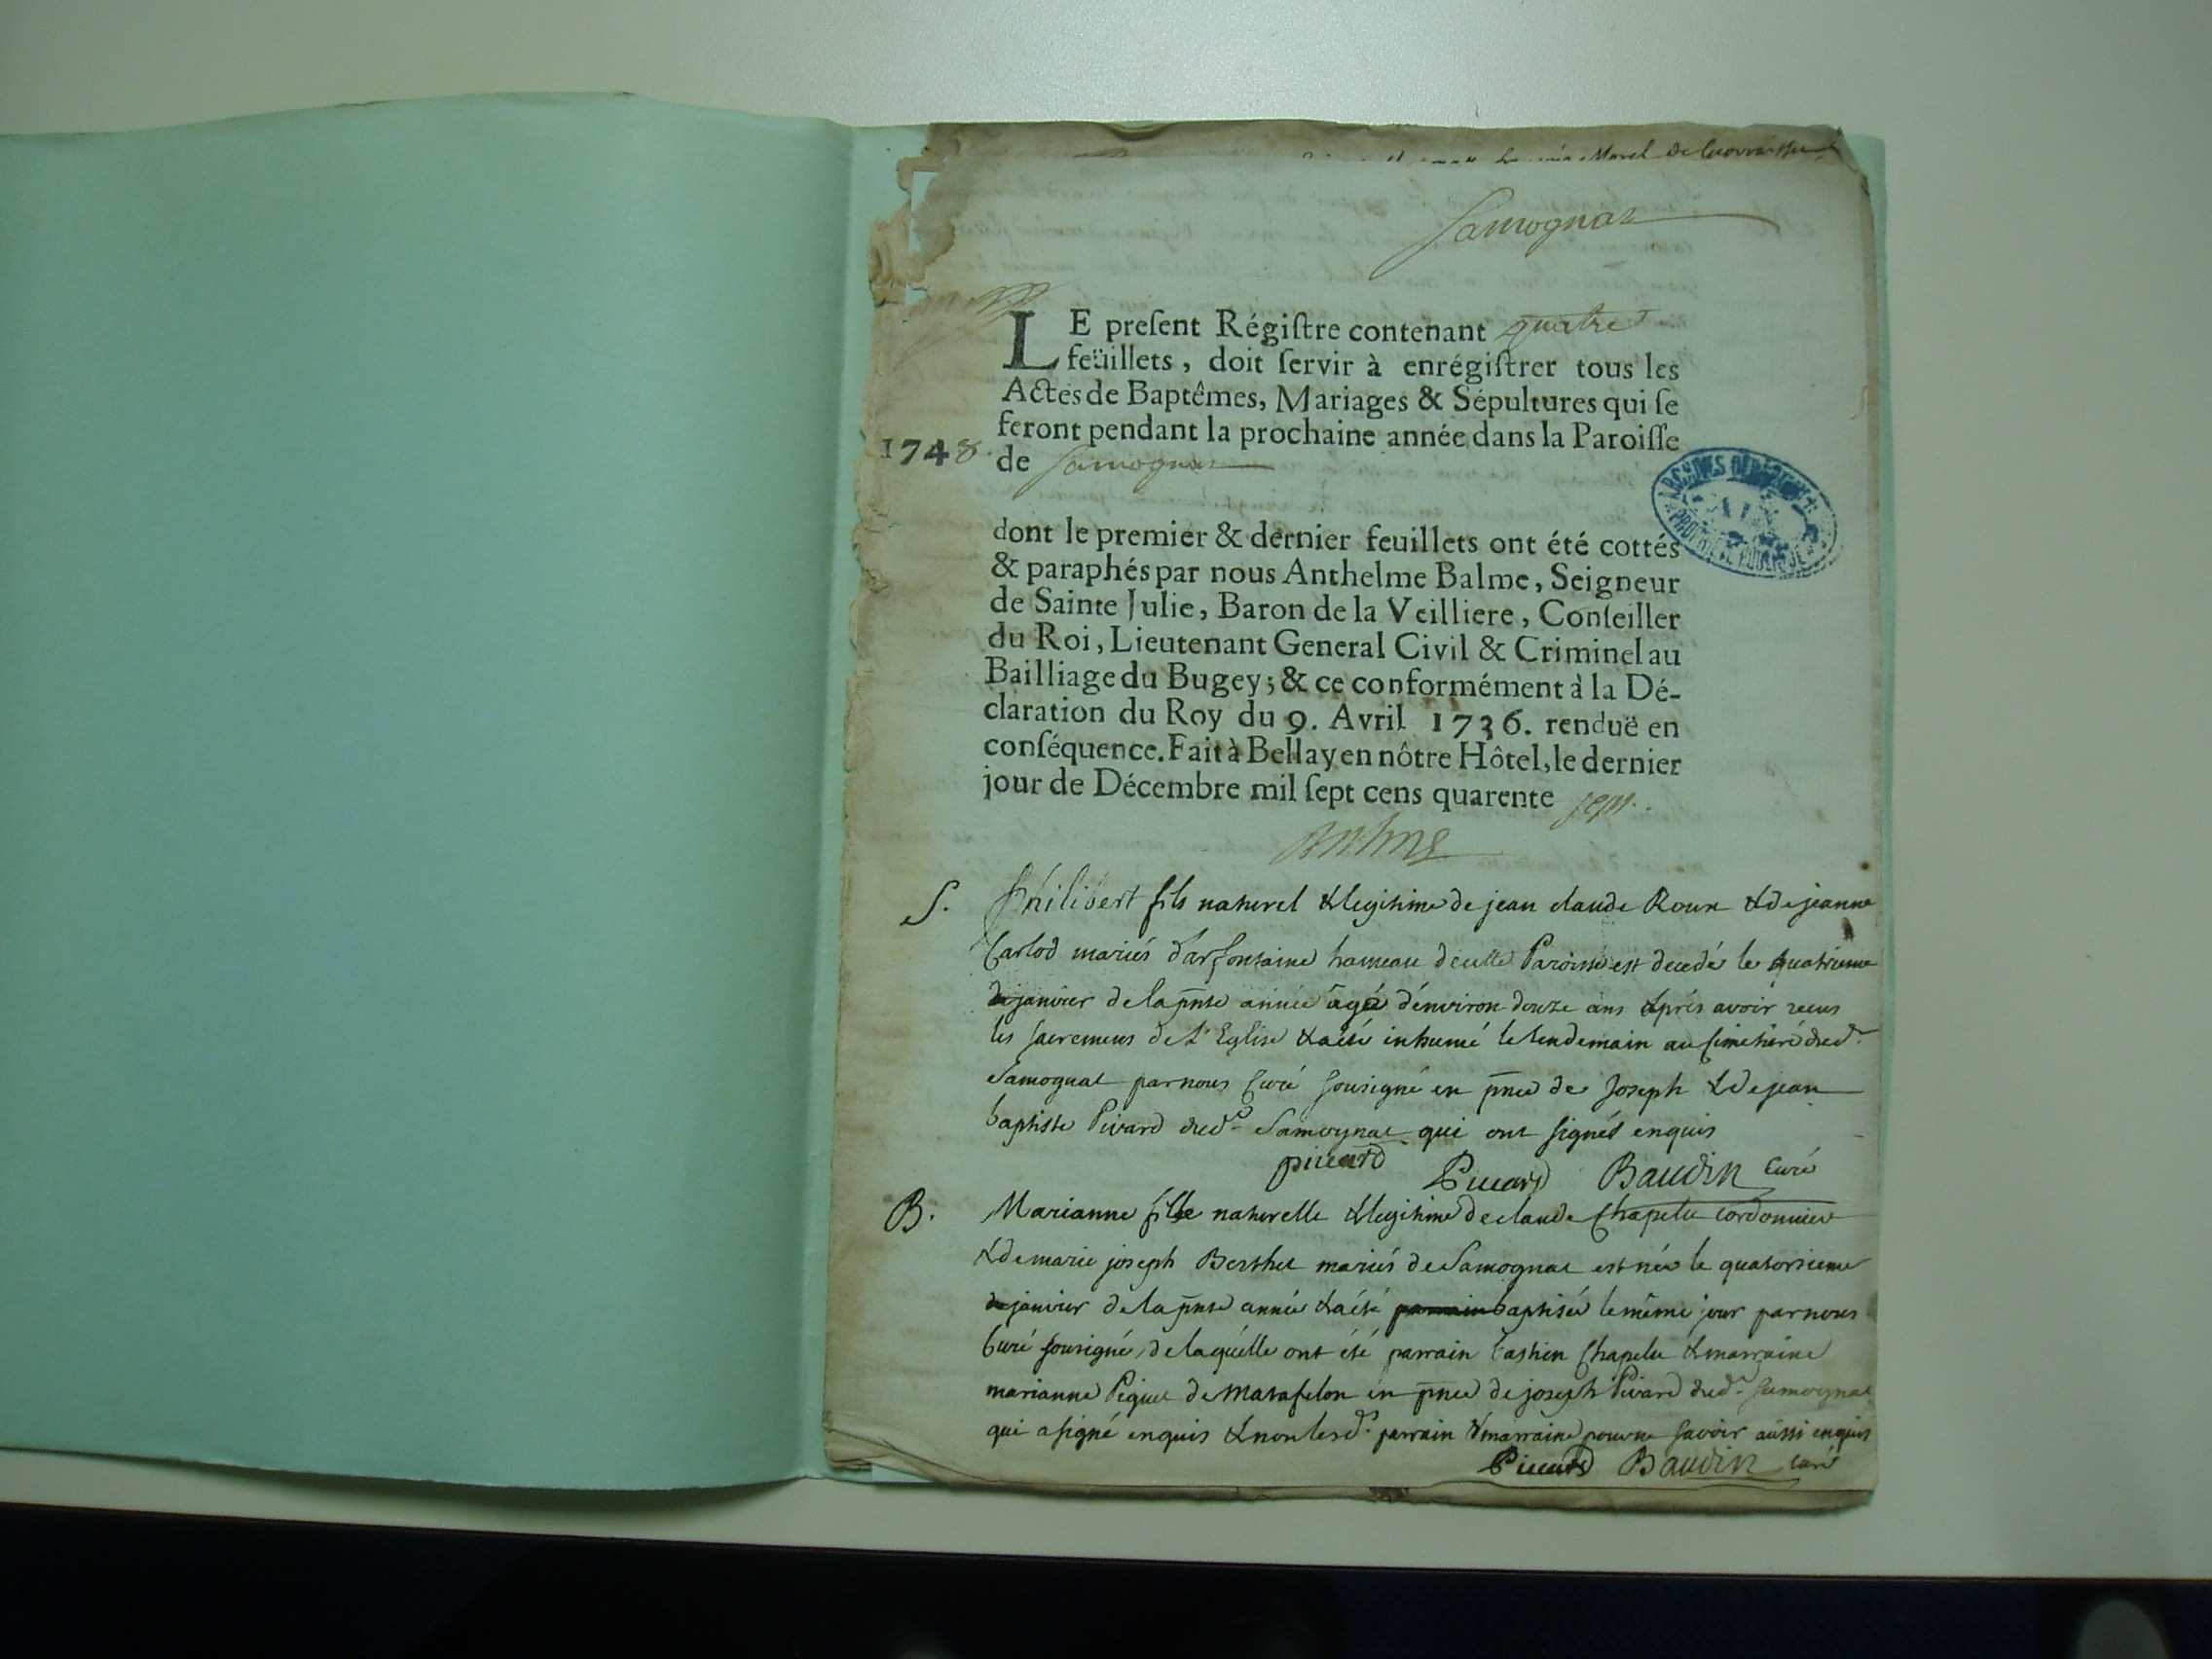 Morel de
Samognat
LE preſent Régiſtre contenant quatre
feüillets, doit ſervir à enrégiſtrer tous les
Actes de Baptêmes, Mariages & Sépultures qui ſe
feront pendant la prochaine année dans la Paroiſſe
1748. de Samognat
dont le premier & dernier feuillets ont été cottés
& paraphés par nous Anthelme Balme, Seigneur
de Sainte Julie, Baron de la Veilliere, Conſeiller
du Roi, Lieutenant General Civil & Criminel au
Bailliage du Bugey; & ce conformément à la Dé-
claration du Roy du 9. Avril 1736. renduë en
conſéquence. Fait à Bellay en nôtre Hôtel, le dernier
jour de Décembre mil ſept cens quarente sept.
ARCHIVES
S. Philibert fils naturel & legitime de jean claude Roux & de jeanne
Carlod mariés d'arfontaine hameau de cette Paroisse est decedé le quatrieme
de janvier de la pnte année agé d'environ douze ans après avoir recus
les sacremens de L'Eglise & a été inhumé le lendemain au simetiere dud.
Samognat par nous Curé sousigné en pnce de Joseph & de jean
baptiste Pivard dud. Samognat qui ont signés enquis
pivard Pivard Baudin Curé
B. Marianne fille naturelle & legitime de claude Chapelu cordonnier
& de marie joseph Berthet mariés de Samognat est née le quatorsieme
de janvier de la pnte année & a été baptisée le même jour par nous
Curé sousigné, de laquelle ont été parrain bastien Chapelu & marraine
marianne Piquet de Matafelon en pnce de joseph Pivard dud. Samognat
qui a signé enquis & non lesd. parrain & marraine pour ne savoir aussi enquis
Pivard Baudin curé